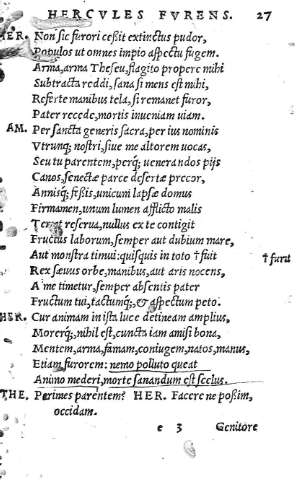 HERCVLES FVRENS. 27
HER. Non sic furori cessit extinctus pudor,
Populos ut omnes impio aspectu fugem.
Arma, arma Theseu, flagito propere mihi
Subtracta reddi, sana si mens est mihi,
Referte manibus tela, si remanet furor,
Pater recede, mortis inueniam uiam.
AM. Per sancta generis sacra, per ius nominis
Vtrunq; nostri, siue me altorem uocas,
Seu tu parentem, perq; uenerandos pijs
Canos, senectæ parce desertæ precor,
Annisq; fessis, unicum lapsæ domus
Firmamen, unum lumen afflicto malis
Temet reserua, nullus ex te contigit
Fructus laborum, semper aut dubium mare,
Aut monstra timui: quisquis in toto † fuit † furit
Rex sæuus orbe, manibus, aut aris nocens,
A me timetur, semper absentis pater
Fructum tui, tactumq;, & aspectum peto.
HER. Cur animam in ista luce detineam amplius,
Morerq;, nihil est, cuncta iam amisi bona,
Mentem, arma, famam, coniugem, natos, manus,
Etiam furorem: nemo polluto queat
Animo mederi, morte sanandum est scelus.
THE. Perimes parentem? HER. Facere ne possim,
occidam.
e 3 Genitore